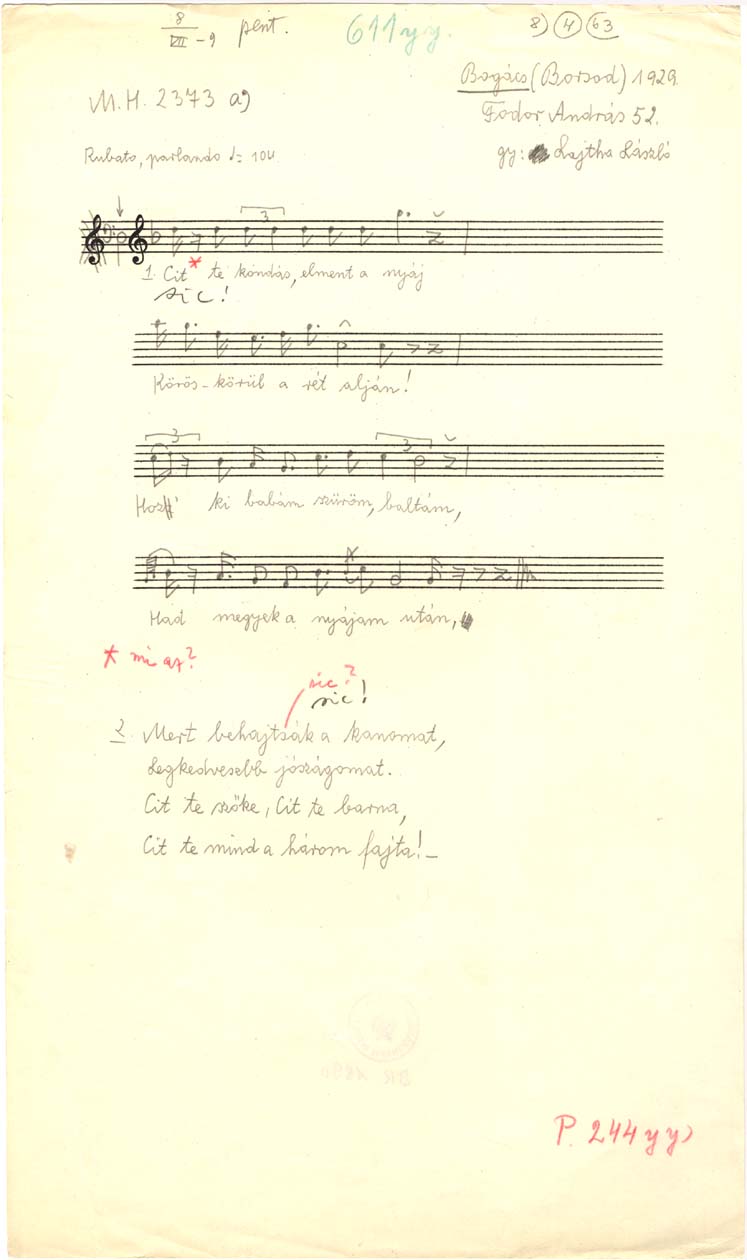 8/VII-9 pent. 611yy. 8) 4 63
Bogács (Borsod) 1929.
M.H. 2373 a)
Fodor András 52.
Rubato, parlando ♩= 104
gy: Lajtha László
3
1. Cit * te kondás, elment a nyáj
sic!
Körös-körül a rét alján!
3 3
Hozd ki babám szüröm, baltám,
Had megyek a nyájam után,
* mi az?
sic?
sic!
2. Mert behajtsák a kanomat,
Legkedvesebb jószágomat.
Cit te szőke, Cit te barna,
Cit te mind a három fajta!_
P. 244yy)